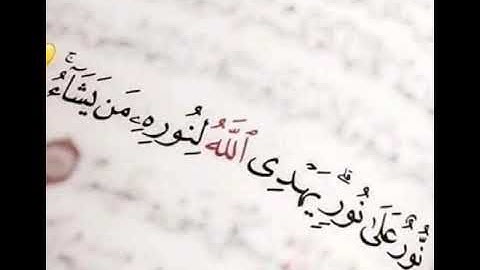 نُّورٌ عَلَىٰ نُورٍ ۗ يَهْدِى ٱللَّهُ لِنُورِهِۦ مَن يَشَآءُ ۚ